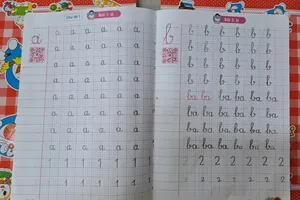 a a a a a a a
a a a a a a
a a a a a a
a a a a a a
a a a a a a
a a a a a a
a a a a a a
a a a a a a
1 1 1 1 1 1 1
1 1 1 1 1 1 1
b b b b b b b
b b b b b b
b b b b b b
b b b b b b
ba ba ba ba ba ba
ba ba ba ba ba ba
ba ba ba ba ba ba
ba ba ba ba ba ba
2 2 2 2 2 2 2
2 2 2 2 2 2 2